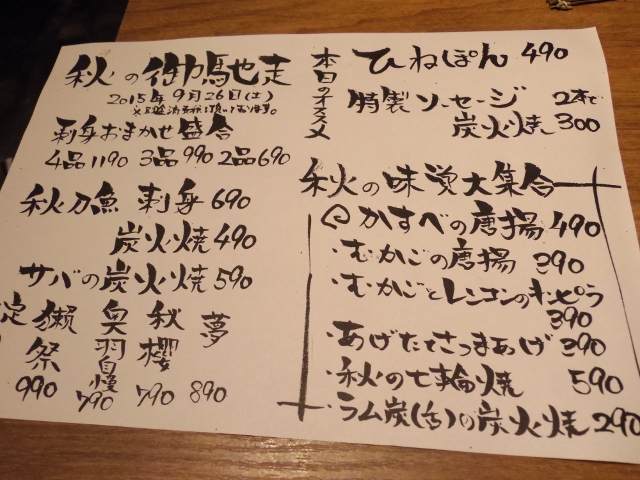 秋の御馳走
2015年9月26日(土)
刺身おまかせ盛合
4品1190 3品990 2品690
秋刀魚 刺身690
炭火焼490
サバの炭火焼590
獺祭 990
奥羽自慢 790
秋櫻 790
夢 890
本日のオススメ
ひねぽん 490
特製ソーセージ 2本で
炭火焼 300
秋の味覚大集合
かすべの唐揚 490
・むかごの唐揚 390
・むかごとレンコンのキンピラ
390
・あげたてさつまあげ 390
・秋の七輪焼 590
・ラム炭(舌)の炭火焼 290